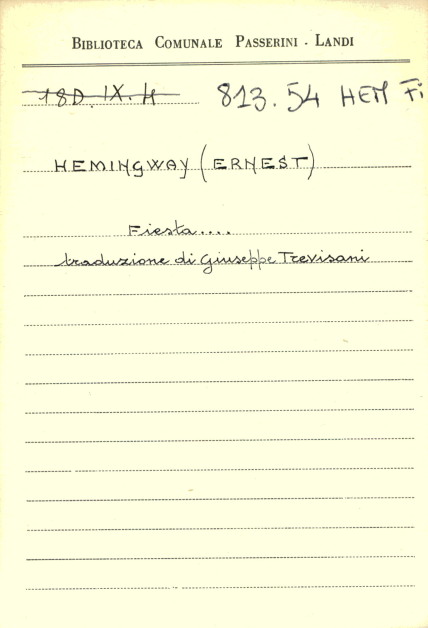 BIBLIOTECA COMUNALE PASSERINI - LANDI
18D. IX. H 813.54 HEM Fi
HEMINGWAY (ERNEST)
Fiesta....
traduzione di Giuseppe Trevisani